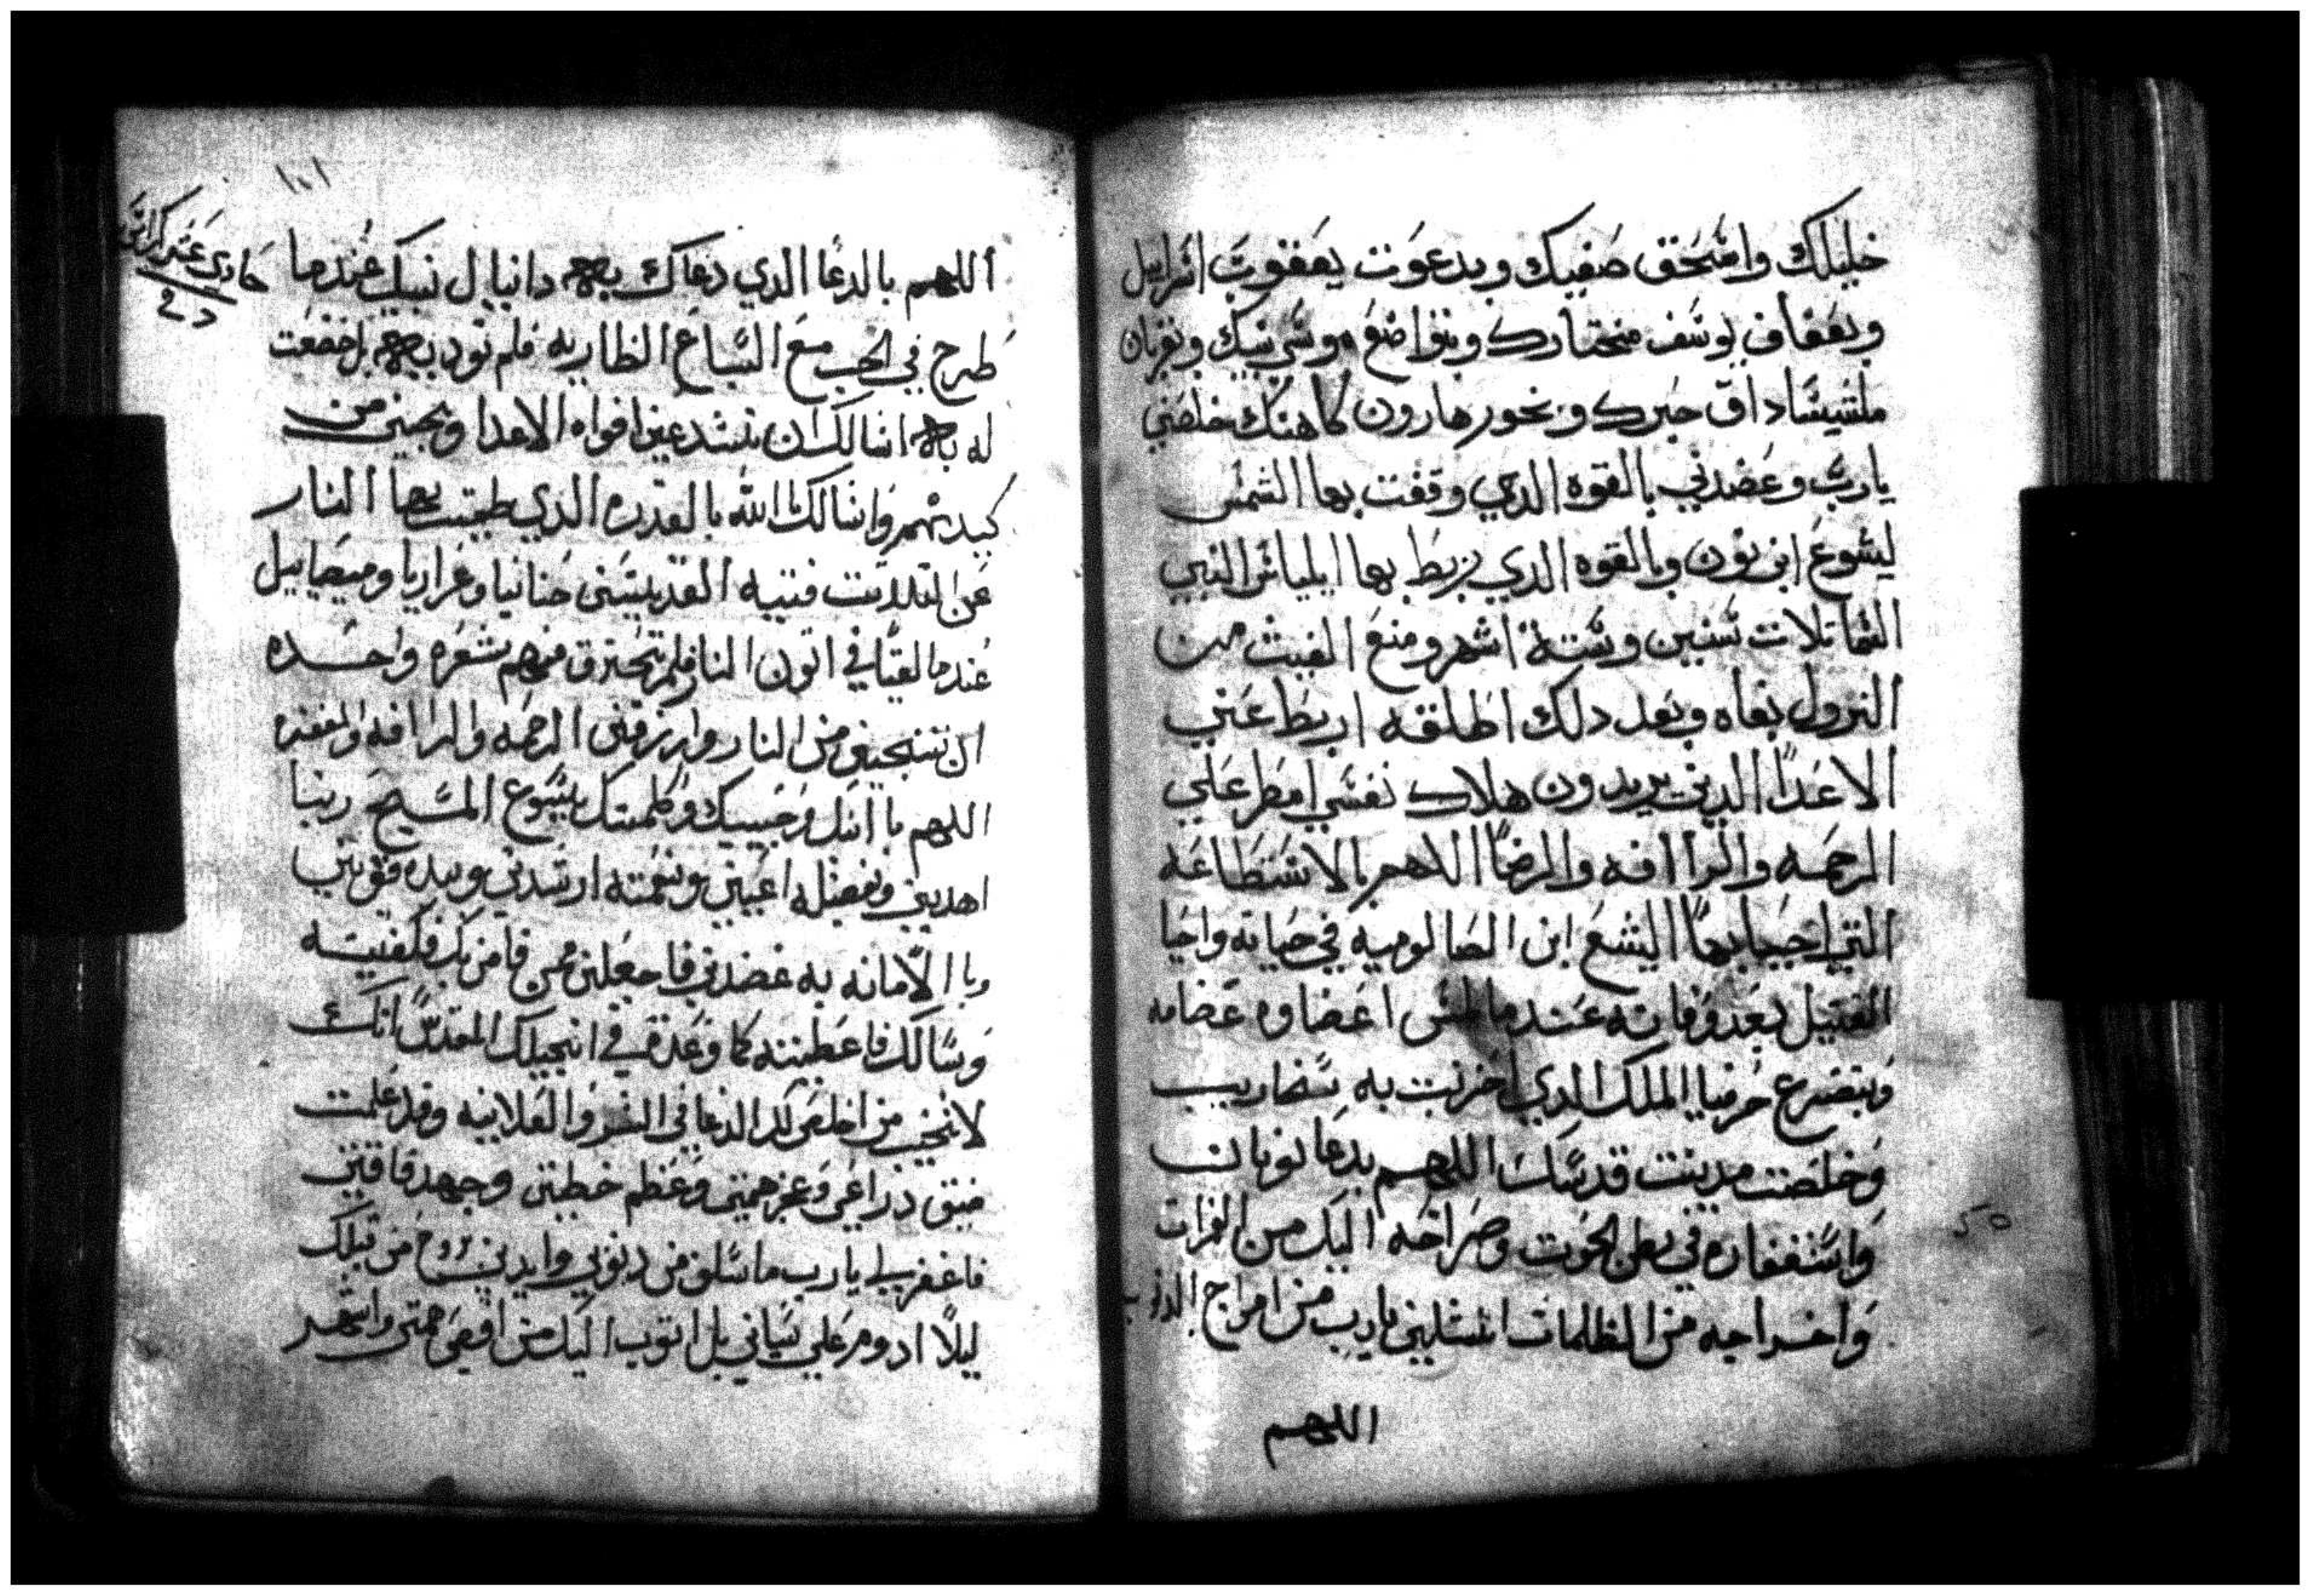 خليلك واسحق صفيك وبدعوت يعقوب اسراييل
وبعفاف يوسف مختارك وبتواضع موسي نبيك وبقربان
ملشيساداق حبرك وبخور هارون كاهنك خلصني
يارب وعضدني بالقوه الدي وقفت بها الشمس
ليشوع ابن نون وبالقوه الدي ربط بها ايلياس النبي
السما تلات سنين وستة اشهر ومنع الغيث من
النزول بفاه وبعد دلك اطلقه اربط عني
الاعدا الدين يريدون هلاك نفسي امطر علي
الرحمه والراافه والرضا اللاهم بالاستطاعه
التي احيا بها اليشع ابن الصالوميه في حياته واحيا
القتيل بعد وفاته عندما لمس اعضاوه عضامه
وبتضرع حزقيا الملك الدي اخزيت به سنحاريب
وخلصت مدينت قدسك اللهم بدعا نونان
واستغفاره في بطن الحوت وصراخه اليك من
واخراجه من الظلمات انتشلني يارب من امواج الدنوب
اللهم
١٠١
حادي عشر
اللهم بالدعا الدي دعاك به دانيال نبيك عندما
طرح في الجب مع السباع الظاريه فلم تودبه بل خضعت
له اسالك ان تسد عني افواه الاعدا ونجيني من
كيدهم واسالك الله بالقدره الدي طفيت بها النار
عن التلات فتيه القديسين حنانيا وعزاريا وميصاييل
عندما القيا في اتون النار فلم تحترق منهم شعره واحده
ان تنجيني من النار وارزقني الرحمه والراافه والمغفره
اللهم با ابنك وحبيبك وكلمتك يسوع المسيح ربنا
اهديني وبفضله اغنيني وبنعمته ارشدني وبيده قويني
وبا الامانه به عضدني فاجعلني ممن فامن بك فكفيته
وسالك فاعطيته كما وعدة في انجيلك المقدس انك
لاتخيب من اخلص لك الدعا في السر والعلانيه وقد علمت
ضيق دراعي وعجز همتي وعظم خطيتي وجهد فاقتي
فاغفر لي يارب ماسلف من دنوبي وايدني بروح من قبلك
ليلا ادوم علي سياتي بل اتوب اليك من اقصي همتي واستغفر